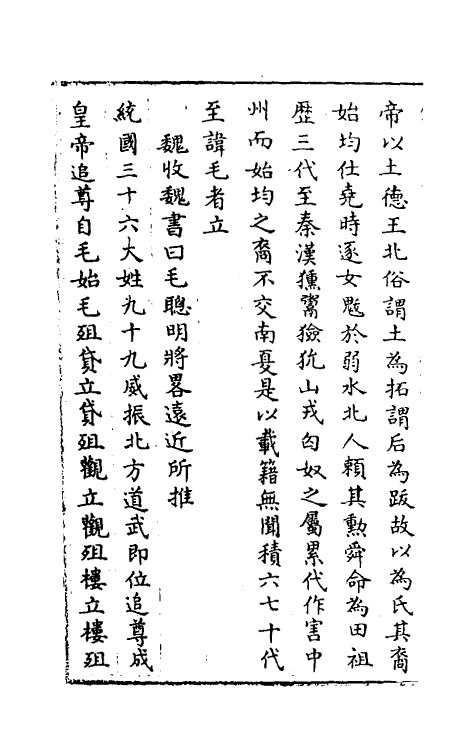 帝以土德王北俗謂土為拓謂后為跋故以為氏其裔
始均仕堯時逐女魃於弱水北人賴其勲舜命為田祖
歴三代至秦漢獯鬻獫狁山戎匈奴之屬累代作害中
州而始均之裔不交南夏是以載籍無聞積六七十代
至諱毛者立
魏收魏書曰毛聰明將畧遠近所推
統國三十六大姓九十九威振北方道武即位追尊成
皇帝追尊自毛始毛殂貸立貸殂觀立觀殂樓立樓殂